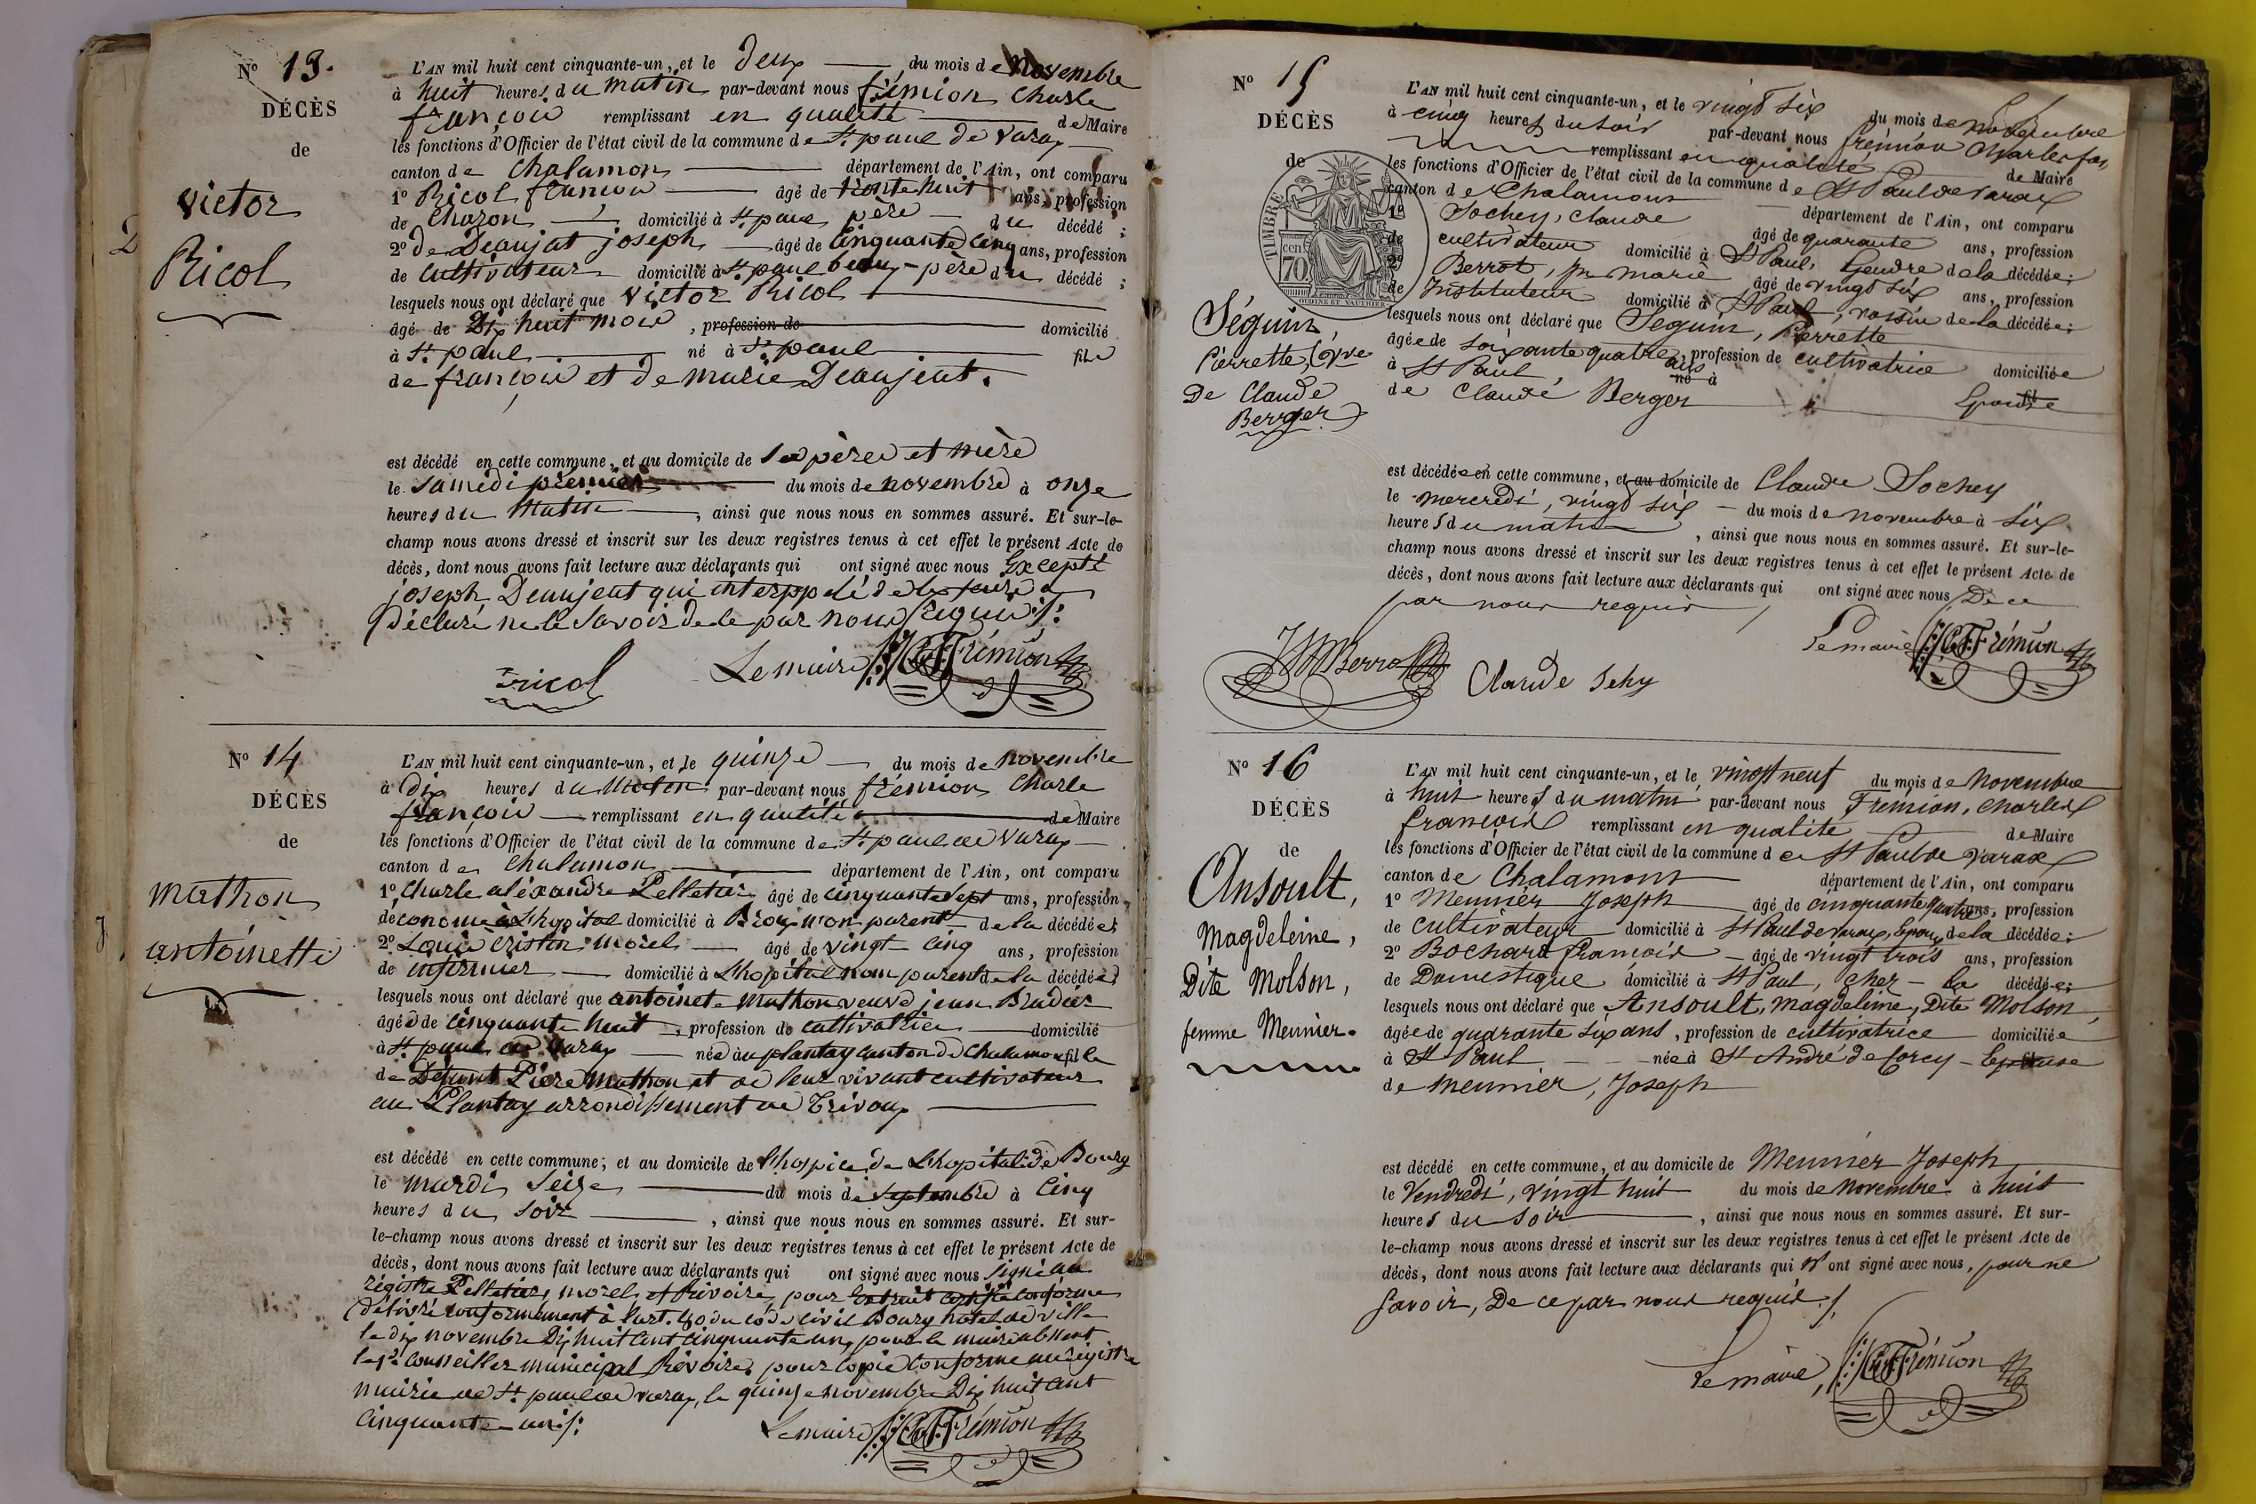 Nº 13.
DÉCÈS
de
Victor
Ricol
L'AN mil huit cent cinquante-un, et le deux du mois de Novembre
à huit heures du matin par-devant nous frémion Charle
françois remplissant en qualité de Maire
les fonctions d'Officier de l'état civil de la commune de St paul de Varax
canton de Chalamon département de l'Ain, ont comparu
1º Ricol françois âgé de trente huit ans, profession
de Charon domicilié à St paul père du décédé ;
2º de Deaujat joseph âgé de Cinquante Cinq ans, profession
de Cultivateur domicilié à St paul beau-père du décédé ;
lesquels nous ont déclaré que Victor Ricol
âgé de Dix huit mois, profession de domicilié
à St paul né à St paul fils
de françois et de marie Deaujeat.
est décédé en cette commune, et au domicile de ses père et mère
le samedi premier du mois de novembre à onze
heures du Matin, ainsi que nous nous en sommes assuré. Et sur-le-
champ nous avons dressé et inscrit sur les deux registres tenus à cet effet le présent Acte de
décès, dont nous avons fait lecture aux déclarants qui ont signé avec nous Excepté
joseph Deaujeat qui interppelé de le faire a
déclaré ne le savoir de ce par nous Requis ./.
Ricol Le maire C F Frémion
Nº 14
DÉCÈS
de
mathon
antoinette
L'AN mil huit cent cinquante-un, et le quinze du mois de novembre
à dix heures du Maten par-devant nous frémion Charle
françois remplissant en qualité de Maire
les fonctions d'Officier de l'état civil de la commune de St paul de Varax
canton de Chalamon département de l'Ain, ont comparu
1º Charle aléxandre Pelletier âgé de cinquante sept ans, profession
déconome à Lhopital domicilié à Brou, non parent de la décédée ;
2º Louis cristin morel âgé de vingt cinq ans, profession
de infirmier domicilié à Lhopital non parent de la décédée ;
lesquels nous ont déclaré que antoinete Mathon veuve jean
âgée de cinquante huit, profession de cultivatrice domicilié
à St paul de Varax née au plantay canton de Chalamon fille
de Defunt Piere Mathon et de leur vivant cultivateur
au Plantay arrondissement de Trévoux
est décédé en cette commune, et au domicile de Lhospice de Lhopital de Bourg
le mardi Seize du mois de Septembre à Cinq
heures du Soir, ainsi que nous nous en sommes assuré. Et sur-
le-champ nous avons dressé et inscrit sur les deux registres tenus à cet effet le présent Acte de
décès, dont nous avons fait lecture aux déclarants qui ont signé avec nous Signé au
régistre Pelletier, morel, et Rivoire, pour Extrait certifié conforme
délivré conformement à l'art. 80 du code civil Bourg hotel de ville
le dix novembre Dix huit Cent Cinquante un, pour le maire absent
le 1er Conseiller municipal Rivoire, pour Copie Conforme au régistre
mairie de St paul de varax, le quinze novembre Dix huit Cent
Cinquante-un ./. Le maire C F Frémion
Nº 15
DÉCÈS
de
TIMBRE
cent
70
Séguin,
Pierrette, Vve
De Claude
Berger
L'AN mil huit cent cinquante-un, et le vingt six du mois de Novembre
à cinq heures du soir par-devant nous frémion Charles fois
remplissant en qualité de Maire
les fonctions d'Officier de l'état civil de la commune de St Paul de Varax
canton de Chalamont département de l'Ain, ont comparu
1º Sochey, Claude âgé de quarante ans, profession
de cultivateur domicilié à St Paul, Gendre de la décédée ;
2º Berrot, jn marie âgé de vingt six ans, profession
de Instituteur domicilié à St Paul, voisin de la décédée ;
lesquels nous ont déclaré que Séguin, Pierrette
âgée de soixante quatre ans, profession de cultivatrice domiciliée
à St Paul, né à Epouse
de Claude Berger
est décédée en cette commune, et au domicile de Claude Sochey
le mercredi, vingt six du mois de novembre à six
heures du matin, ainsi que nous nous en sommes assuré. Et sur-le-
champ nous avons dressé et inscrit sur les deux registres tenus à cet effet le présent Acte de
décès, dont nous avons fait lecture aux déclarants qui ont signé avec nous, De ce
par nous requis,
Berrot Claude Le maire C F Frémion
Nº 16
DÉCÈS
de
Ansoult,
Magdeleine,
Dite Molson,
femme Meunier.
L'AN mil huit cent cinquante-un, et le vingt neuf du mois de Novembre
à huit heures du matin par-devant nous Frémion, Charles
françois remplissant en qualité de Maire
les fonctions d'Officier de l'état civil de la commune de St Paul de Varax
canton de Chalamont département de l'Ain, ont comparu
1º Meunier Joseph âgé de cinquante quatre ans, profession
de cultivateur domicilié à St Paul de Varax, époux de la décédée ;
2º Bochard françois âgé de vingt trois ans, profession
de Domestique domicilié à St Paul, chez la décédée ;
lesquels nous ont déclaré que Ansoult, Magdeleine, Dite Molson,
âgée de quarante six ans, profession de cultivatrice domiciliée
à St Paul née à St André de Corcy Epouse
de Meunier, Joseph
est décédé en cette commune, et au domicile de Meunier Joseph
le Vendredi, vingt huit du mois de Novembre à huit
heures du Soir, ainsi que nous nous en sommes assuré. Et sur-
le-champ nous avons dressé et inscrit sur les deux registres tenus à cet effet le présent Acte de
décès, dont nous avons fait lecture aux déclarants qui n'ont signé avec nous, pour ne
Savoir, De ce par nous requis ./.
Le maire, C F Frémion